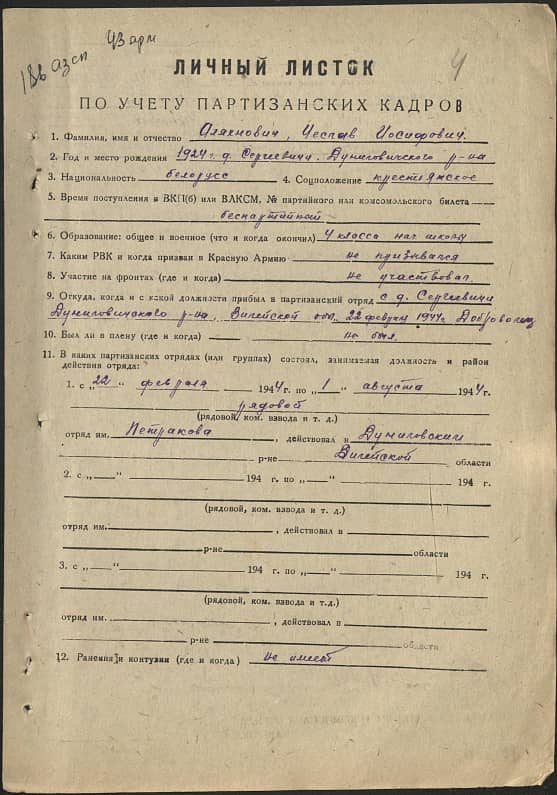 43 арм
188 азсп
4
ЛИЧНЫЙ ЛИСТОК
ПО УЧЕТУ ПАРТИЗАНСКИХ КАДРОВ
1. Фамилия, имя и отчество Аляхнович, Чеслав Иосифович.
2. Год и место рождения 1924 г. д. Сергеевичи. Дуниловичского р-на
3. Национальность белорусс 4. Соцположение крестьянское
5. Время поступления в ВКП(б) или ВЛКСМ, № партийного или комсомольского билета
беспартийный
6. Образование: общее и военное (что и когда окончил) 4 класса нач школы
7. Каким РВК и когда призван в Красную Армию не призывался
8. Участие на фронтах (где и когда) не участвовал.
9. Откуда, когда и с какой должности прибыл в партизанский отряд с д. Сергеевичи
Дуниловичского р-на, Вилейской обл. 22 февраля 1944 г. Доброволец
10. Был ли в плену (где и когда) не был.
11. В каких партизанских отрядах (или группах) состоял, занимаемая должность и район
действия отряда:
1. с „22“ февраля 1944 г. по „1“ августа 1944 г.
рядовой
(рядовой, ком. взвода и т. д.)
отряд им. Петракова, действовал в Дуниловским
р-не Вилейской области
2. с „ “ 194 г. по „ “ 194 г.
(рядовой, ком. взвода и т. д.)
отряд им. , действовал в
р-не области
3. с „ “ 194 г. по „ “ 194 г.
(рядовой, ком. взвода и т.д.)
отряд им. , действовал в
р-не области
12. Ранения и контузии (где и когда) не имеет